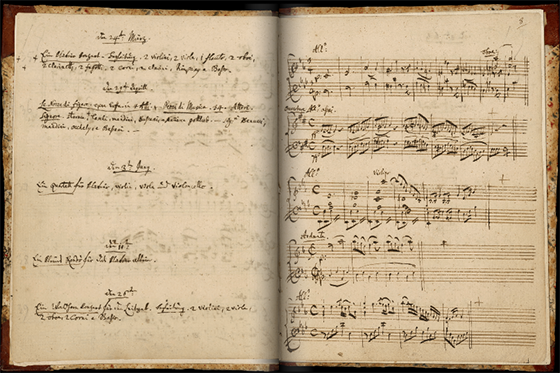 Den 24ten März
Ein klavier konzert. Begleitung. 2 violini, 2 viole, 1 flauto, 2 oboe,
2 clarinetti, 2 fagotti, 2 corni, 2 clarini, timpany e Basso.
Den 29ten April
Le Nozze di Figaro. opera buffa. in 4 Atti. Pezzi di musica. 34. Attori.
Signore. Laschi, Mandini, Bussani, e Nannina gottlieb. — Sigri Benucci,
Mandini, Occhely, e Bussani. —
Den 3ten Juny
Ein Quartett für klavier, violin, viola und violoncello.
den 10ten
Ein Rondò für das klavier allein.
Den 26ten
Ein Waldhorn konzert für den leitgeb. begleitung. 2 violini, 2 viole,
2 oboe, 2 corni e Basso.
3
Allo
oboe
Ouverture Allo assai
Allo
violin
Andante
Allo